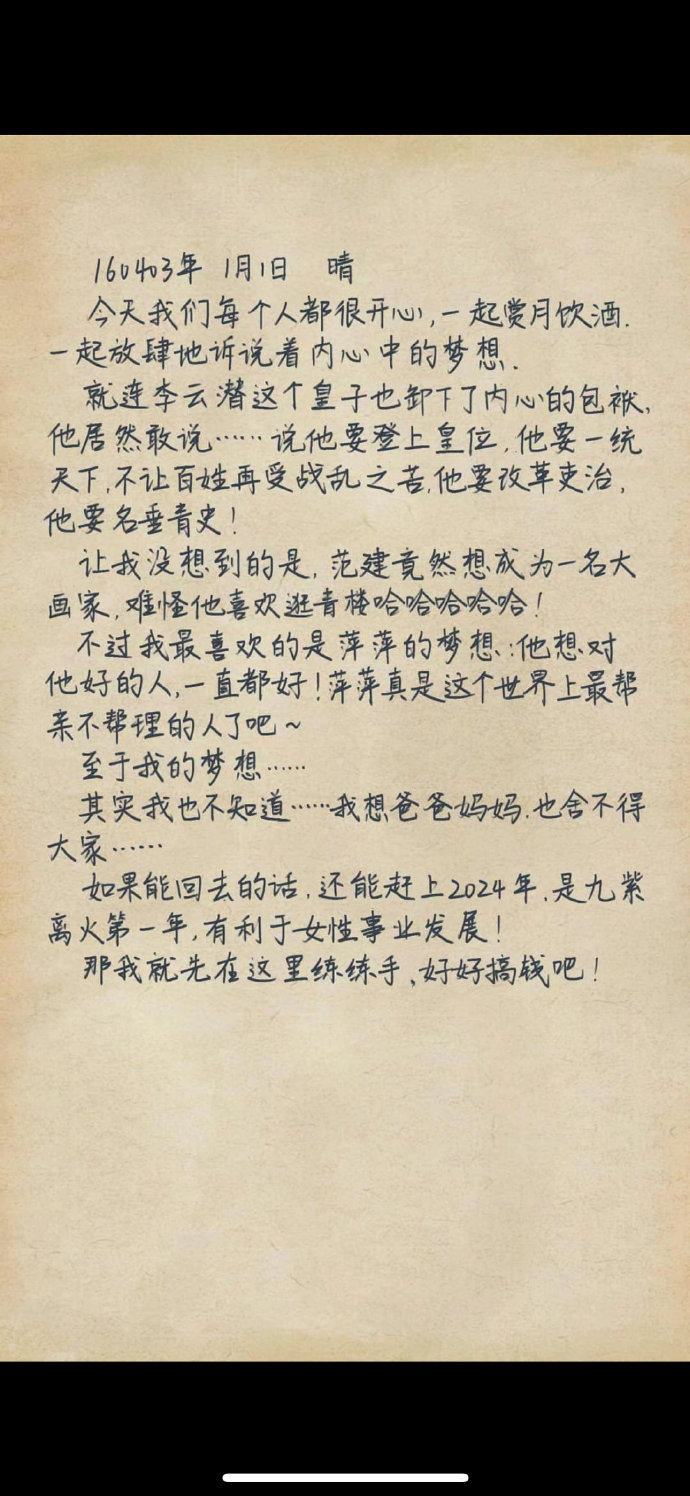 160403年 1月1日 晴
今天我们每个人都很开心,一起赏月饮酒.
一起放肆地诉说着内心中的梦想.
就连李云潜这个皇子也卸下了内心的包袱,
他居然敢说……说他要登上皇位,他要一统
天下,不让百姓再受战乱之苦,他要改革吏治,
他要名垂青史!
让我没想到的是,范建竟然想成为一名大
画家,难怪他喜欢逛青楼哈哈哈哈哈!
不过我最喜欢的是萍萍的梦想:他想对
他好的人,一直都好!萍萍真是这个世界上最帮
亲不帮理的人了吧~
至于我的梦想……
其实我也不知道……我想爸爸妈妈.也舍不得
大家……
如果能回去的话,还能赶上2024年,是九紫
离火第一年,有利于女性事业发展!
那我就先在这里练练手、好好搞钱吧!